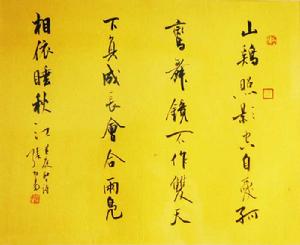 山鷄照影空自愛孤
鸞舞鏡不作雙天
下真成長會合兩鳧
相依睡秋江